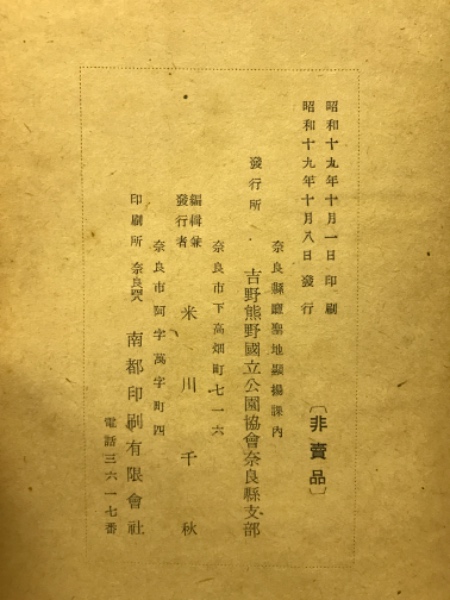 昭和十九年十月一日印刷
昭和十九年十月八日發行
〔非賣品〕
奈良縣廳聖地顯揚課內
發行所 吉野熊野國立公園協會奈良縣支部
奈良市下高畑町七一六
編輯兼發行者 米川千秋
奈良市阿字萬字町四
印刷所 南都印刷有限會社
電話三六一七番